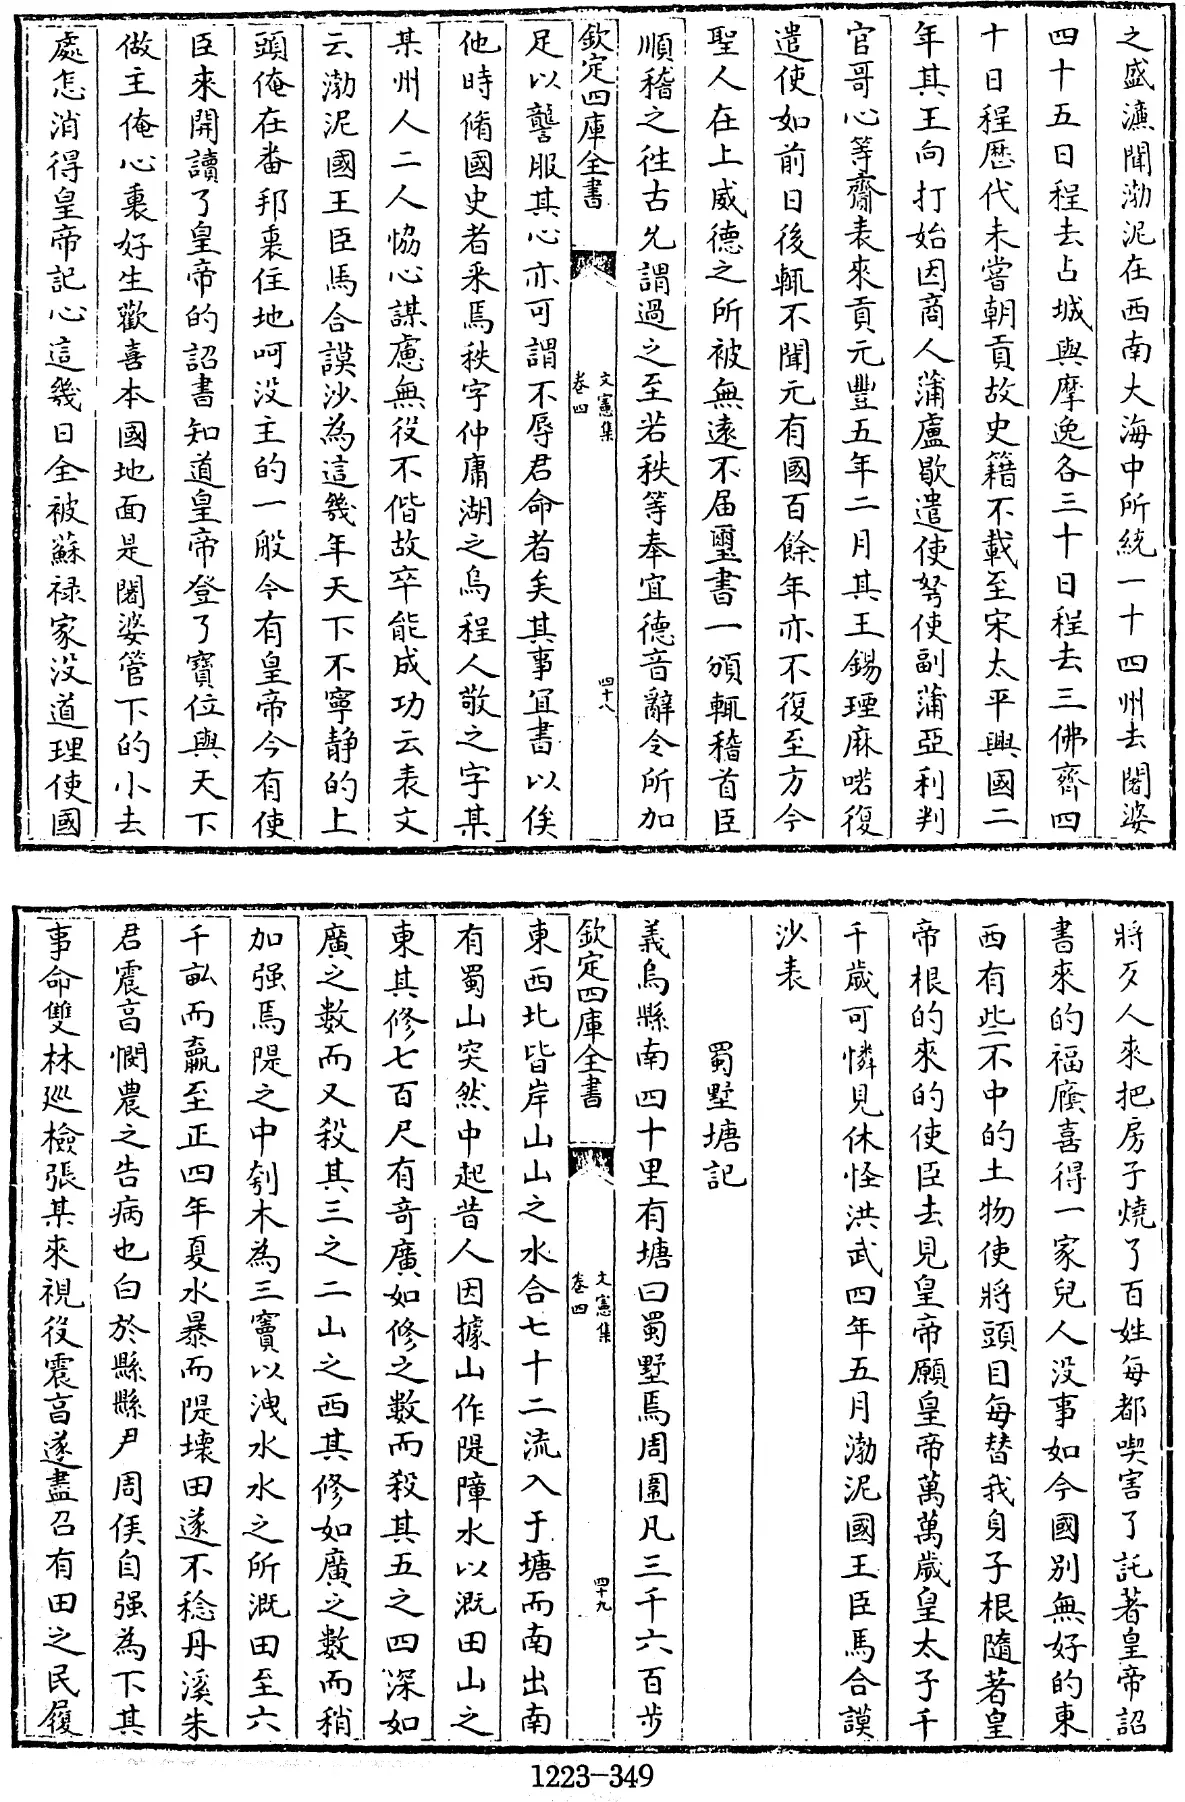 之盛濂聞渤泥在西南大海中所統一十四州去闍婆
四十五日程去占城與摩逸各三十日程去三佛齊四
十日程歴代未嘗朝貢故史籍不載至宋太平興國二
年其王向打始因商人蒲盧歇遣使弩使副蒲亞利判
官哥心等齎表來貢元豐五年二月其王錫理麻喏復
遣使如前日後輒不聞元有國百餘年亦不復至方今
聖人在上威德之所被無遠不届璽書一頒輒稽首臣
順稽之徃古尤謂過之至若秩等奉宣德音辭令所加
欽定四庫全書
文憲集
卷四
四十八
足以讋服其心亦可謂不辱君命者矣其事宜書以俟
他時脩國史者采焉秩字仲庸湖之烏程人敬之字某
某州人二人恊心謀慮無役不偕故卒能成功云表文
云渤泥國王臣馬合謨沙為這幾年天下不寧静的上
頭俺在畨邦裏住地呵没主的一般今有皇帝今有使
臣來開讀了皇帝的詔書知道皇帝登了寳位與天下
做主俺心裏好生歡喜本國地面是闍婆管下的小去
處怎消得皇帝記心這幾日全被蘇禄家没道理使國
將歹人來把房子燒了百姓每都喫害了託著皇帝詔
書來的福廕喜得一家兒人没事如今國别無好的東
西有些不中的土物使將頭目每替我身子根隨著皇
帝根的來的使臣去見皇帝願皇帝萬萬歲皇太子千
千歲可憐見休怪洪武四年五月渤泥國王臣馬合謨
沙表
蜀墅塘記
義烏縣南四十里有塘曰蜀墅焉周圍凡三千六百步
欽定四庫全書
文憲集
卷四
四十九
東西北皆岸山山之水合七十二流入于塘而南出南
有蜀山突然中起昔人因據山作隄障水以溉田山之
東其修七百尺有竒廣如修之數而殺其五之四深如
廣之數而又殺其三之二山之西其修如廣之數而稍
加强焉隄之中刳木為三竇以洩水水之所溉田至六
千畝而羸至正四年夏水暴而隄壊田遂不稔丹溪朱
君震亯憫農之告病也白於縣縣尹周侯自强為下其
事命雙林廵檢張某來視役震亯遂盡召有田之民履
1223-349